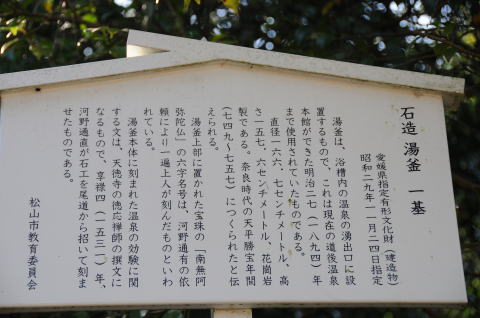 石造 湯釜 一基
愛媛県指定有形文化財（建造物）
昭和二九年一一月二四日指定
湯釜は、浴槽内の温泉の湧出口に設
置するもので、これは現在の道後温泉
本館ができた明治二七（一八九四）年
まで使用されていたものである。
直径一六六・七センチメートル、高
さ一五七・六センチメートル、花崗岩
製である。奈良時代の天平勝宝年間
（七四九～七五七）につくられたと伝
えられる。
湯釜上部に置かれた宝珠の「南無阿
弥陀仏」の六字名号は、河野通有の依
頼により一遍上人が刻んだものといわ
れている。
湯釜本体に刻まれた温泉の効験に関
する文は、天徳寺の徳応禅師の撰文に
なるもので、享禄四（一五三一）年、
河野通直が石工を尾道から招いて刻ま
せたものである。
松山市教育委員会